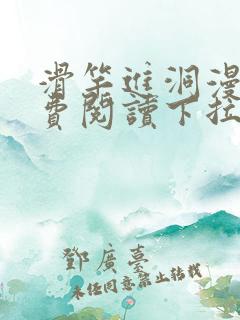 滑竿进洞漫
费閱讀下拉
鄧廣臺
未经同意禁止转载